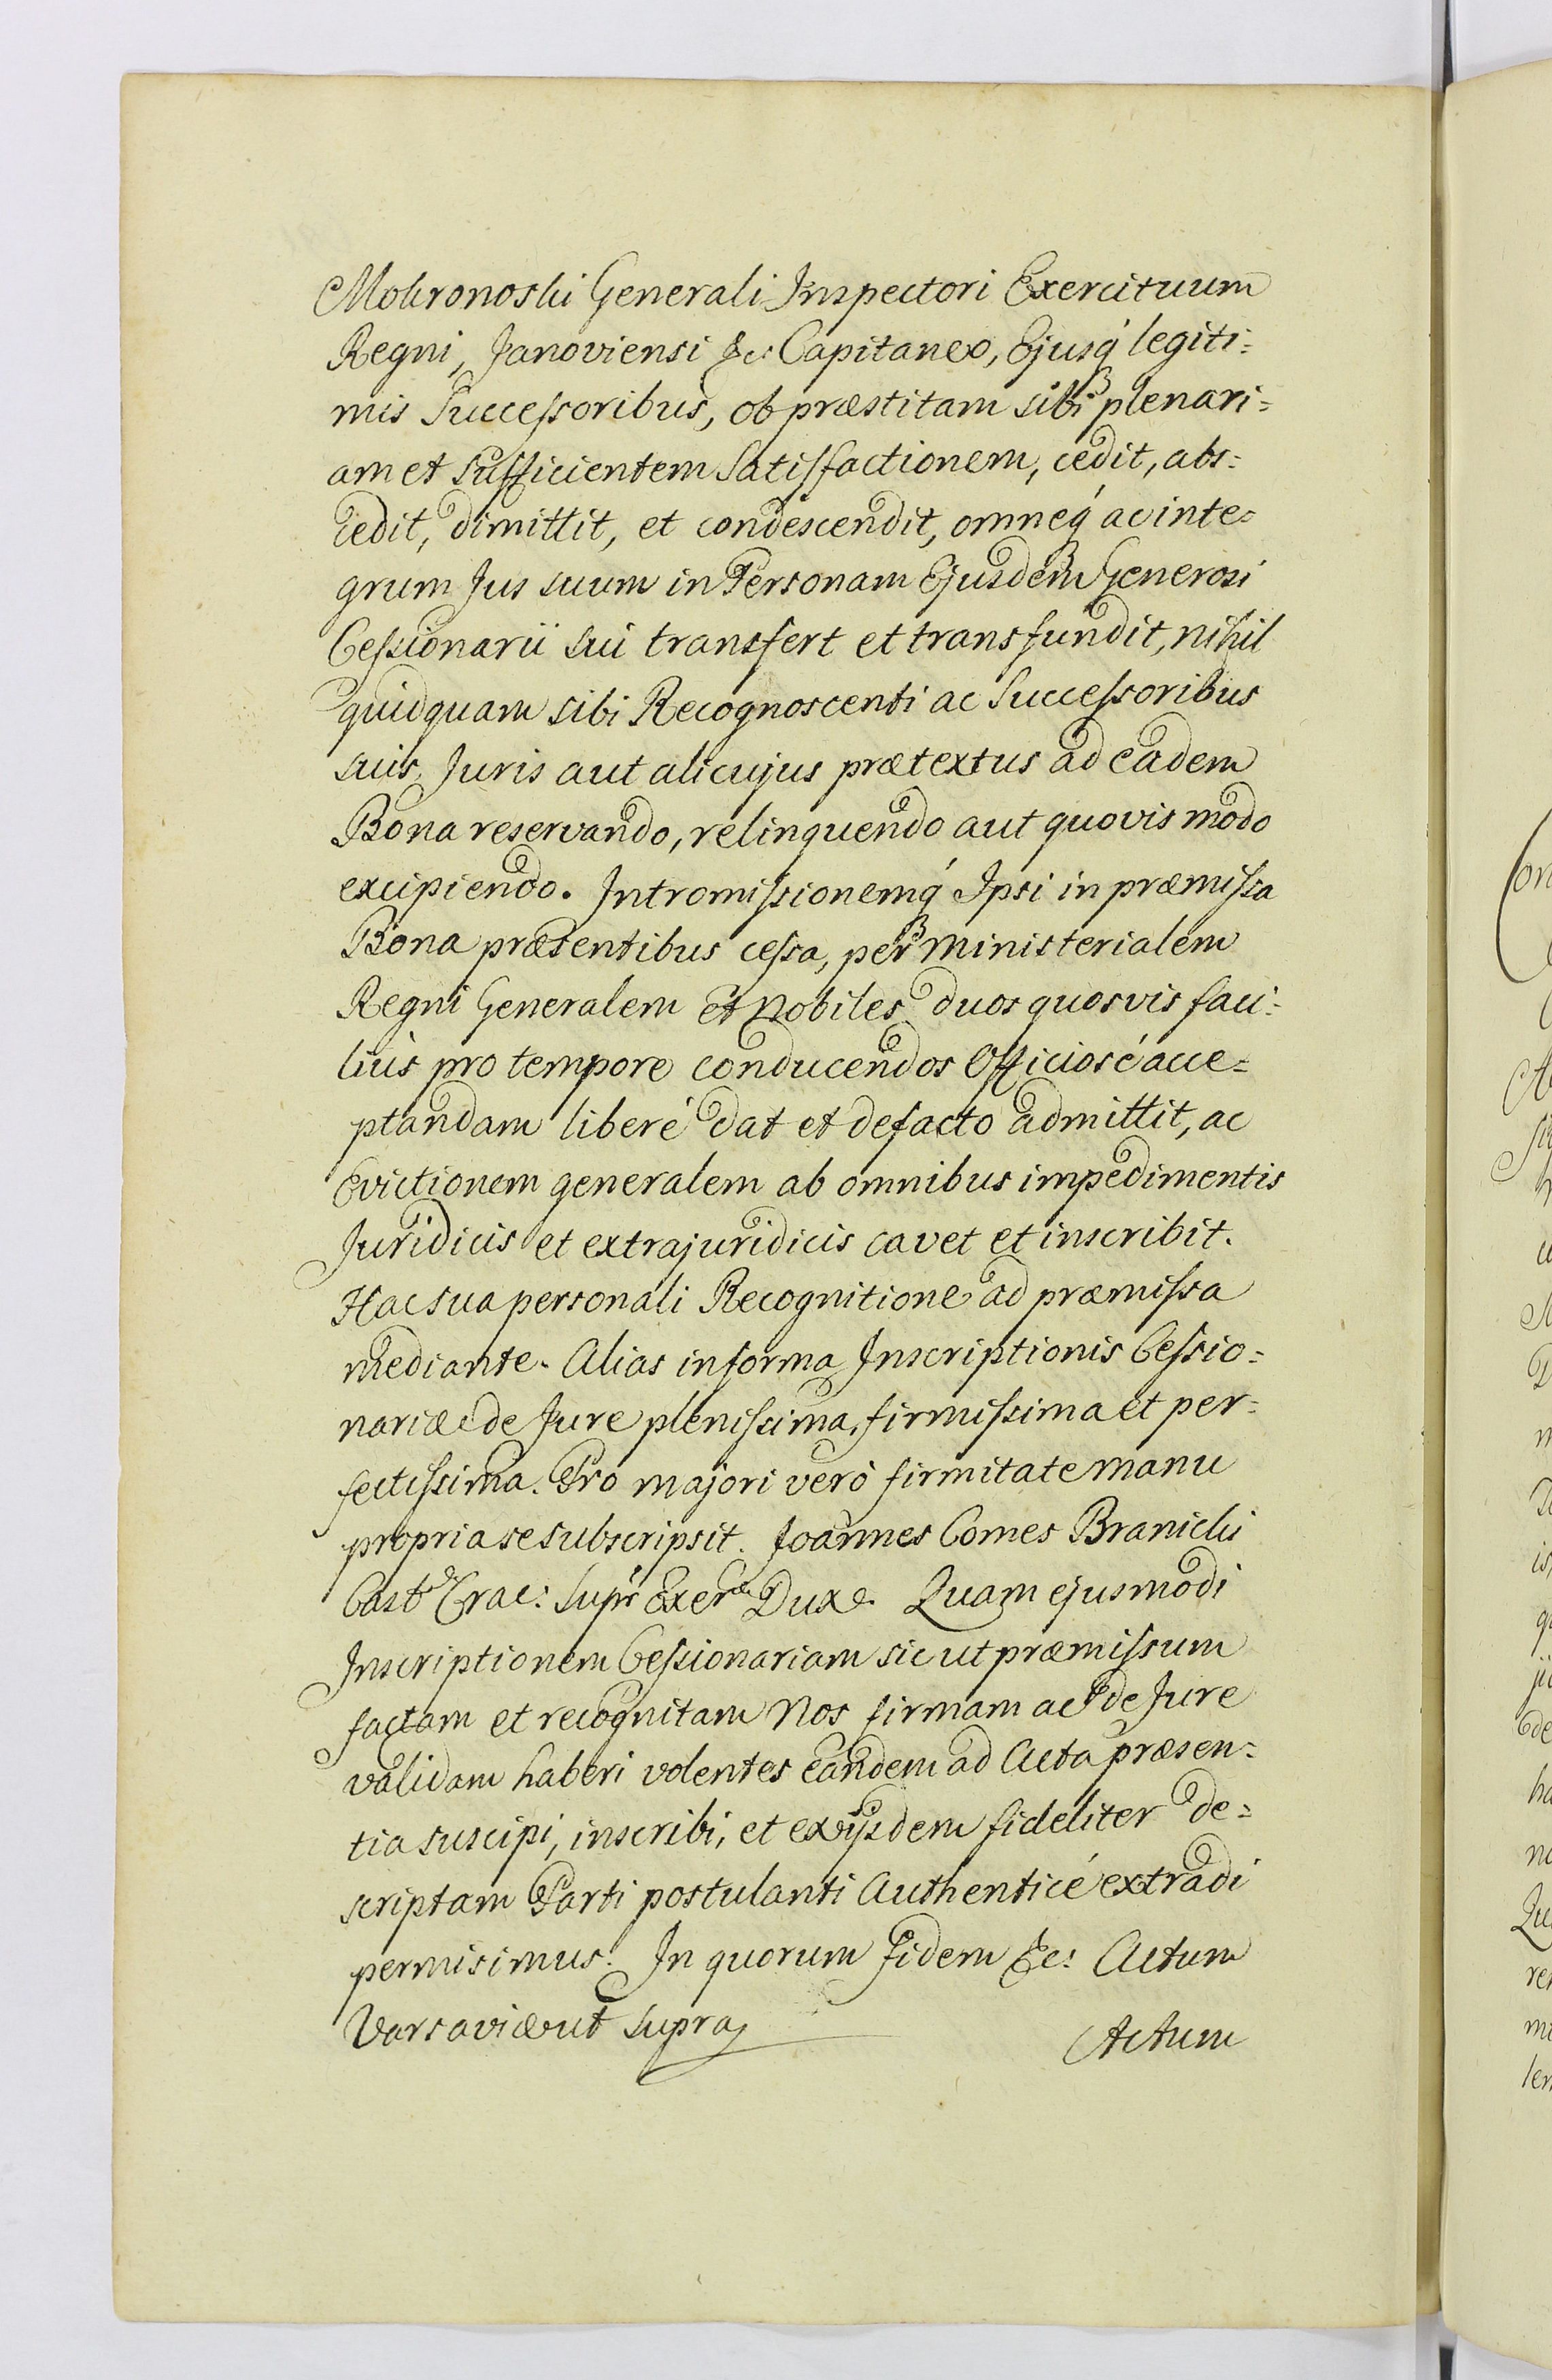 Mokronoski Generali Inspectori Exercituum
Regni, Janoviensi &c: Capitaneo, Ejusq́ legiti:
mis Succeſsoribus, ob præstitam sibi plenari:
am et Sufficientem Satisfactionem, cedit, abs:
cedit, dimittit, et condescendit, omneq́ ac inte:
grum Jus suum in Personam Ejusdem Generosi
Ceſsionarii sui transfert et transfundit, nihil
quidquam sibi Recognoscenti ac Succeſsoribus
suis, Juris aut alicujus prætextus ad eadem
Bona reservando, relinquendo aut quovis modo
excipiendo. Intromiſsionemq́ Ipsi in præmiſsa
Bona præsentibus ceſsa, per Ministerialem
Regni Generalem et Nobiles duos quosvis faci:
lius pro tempore conducendos Officiosé acce:
ptandam liberé dat et defacto admittit, ac
Evictionem generalem ab omnibus impedimentis
Juridicis et extrajuridicis cavet et inscribit.
Hac sua personali Recognitione ad præmiſsa
mediante. Alias in forma Inscriptionis Ceſsio:
nariæ de Jure pleniſsima, firmiſsima et per:
fectiſsima. Pro majori veró firmitate manu
propria se subscripsit. Joannes Comes Branicki
Cast: Crac: Supr Exer Dux. Quam ejusmodi
Inscriptionem Ceſsionariam sic ut præmiſsum
factam et recognitam Nos firmam ac de Jure
validam haberi volentes eandem ad Acta præsen:
tia suscipi, inscribi, et ex ijsdem fideliter de:
scriptam Parti postulanti Authenticé extradi
permisimus. In quorum Fidem &c: Actum
Varsaviæ ut supra
Actum